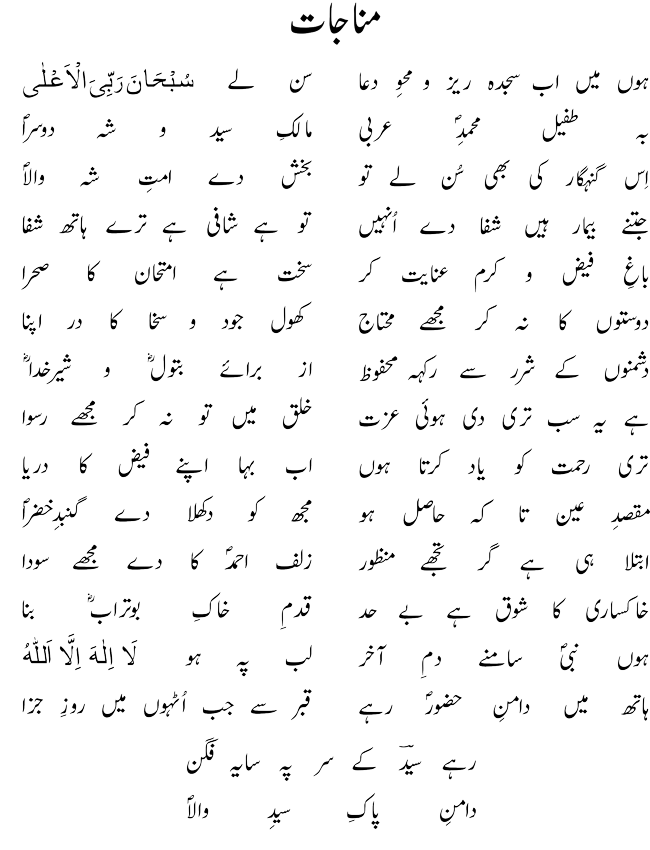 مناجات
ہوں میں اب سجدہ ریز و محوِ دعا سن لے سُبْحَانَ رَبِّیَ الْاَعْلٰی
بہ طفیل محمدِؐ عربی مالکِ سید و شہ دوسراؐ
اِس گنہگار کی بھی سُن لے تو بخش دے امتِ شہ والاؐ
جتنے بیمار ہیں شفا دے اُنہیں تو ہے شافی ہے ترے ہاتھ شفا
باغِ فیض و کرم عنایت کر سخت ہے امتحان کا صحرا
دوستوں کا نہ کر مجھے محتاج کھول جود و سخا کا در اپنا
دشمنوں کے شرر سے رکھہ محفوظ از برائے بتولؓ و شیرخداؓ
ہے یہ سب تری دی ہوئی عزت خلق میں تو نہ کر مجھے رسوا
تری رحمت کو یاد کرتا ہوں اب بہا اپنے فیض کا دریا
مقصدِ عین تا کہ حاصل ہو مجھ کو دکھلا دے گنبدِخضراؐ
ابتلا ہی ہے گر تجھے منظور زلف احمدؐ کا دے مجھے سودا
خاکساری کا شوق ہے بے حد قدمِ خاکِ بوترابؓ بنا
ہوں نبیؐ سامنے دمِ آخر لب پہ ہو لَا اِلٰهَ اِلَّا اَللّٰهُ
ہاتھ میں دامنِ حضورؐ رہے قبر سے جب اُٹہوں میں روزِ جزا
رہے سیدؔ کے سر پہ سایہ فگن
دامنِ پاکِ سیدِ والاؐ